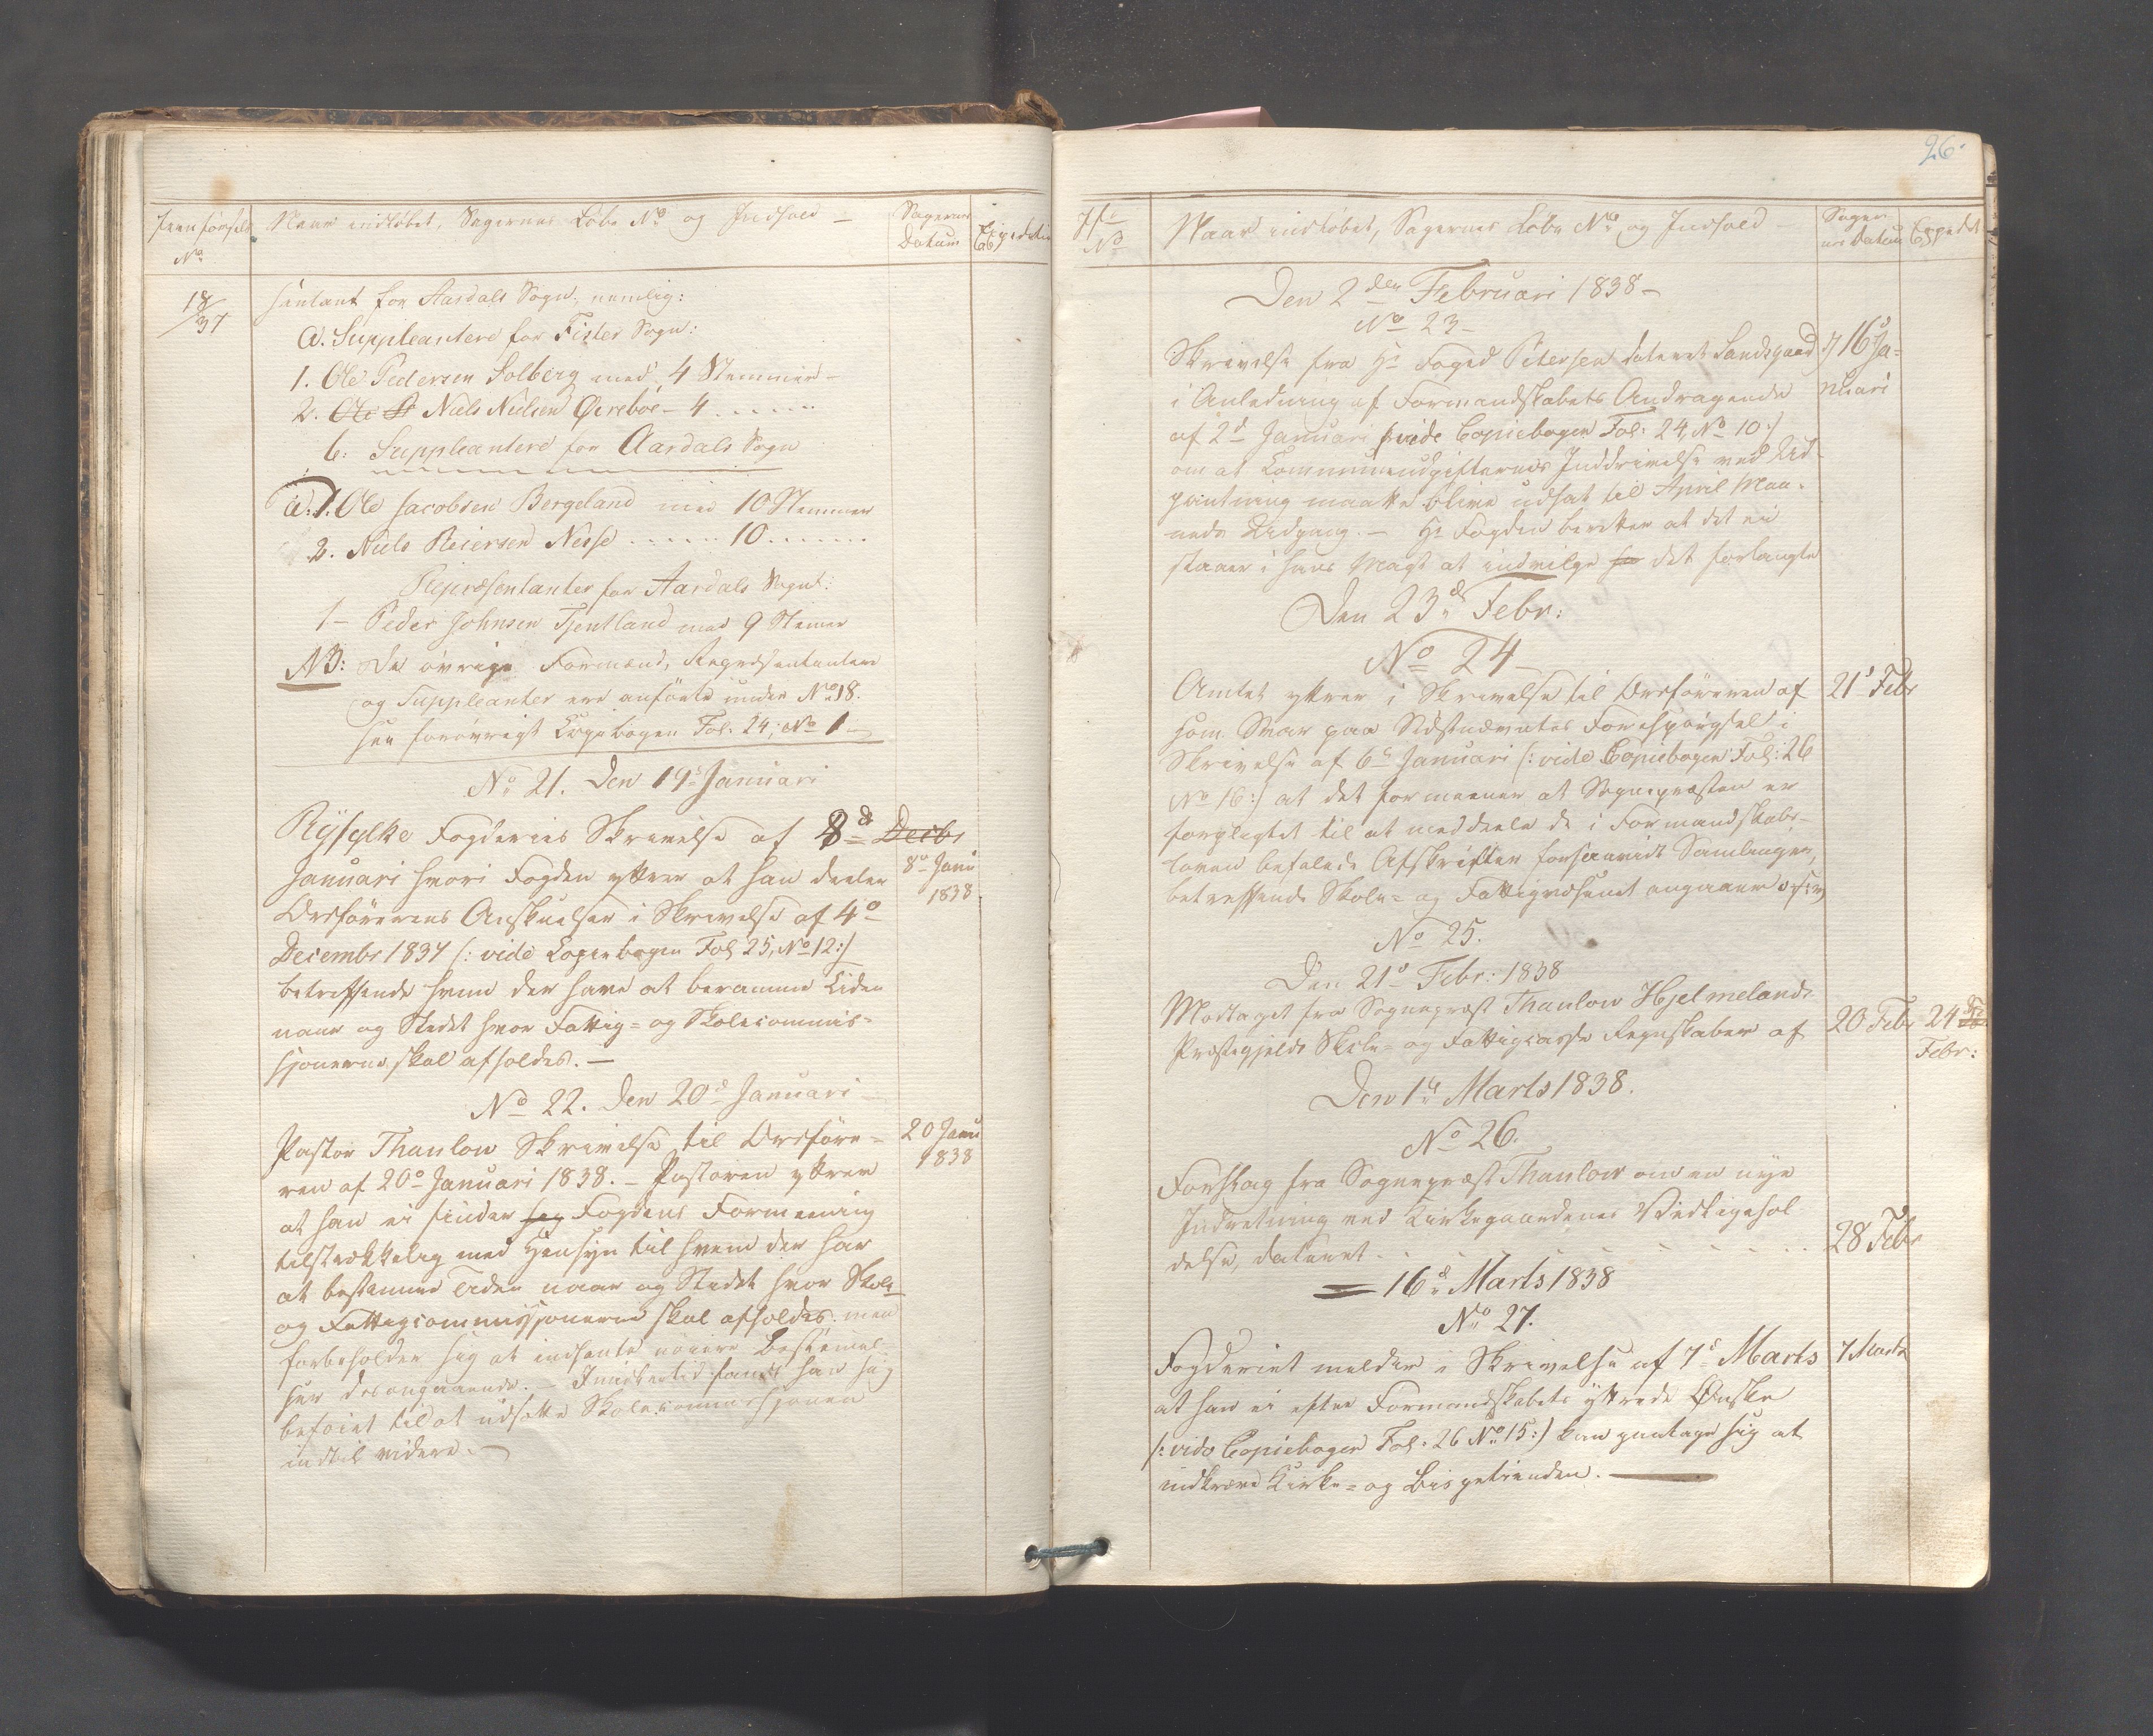 Jevnførsels
No
Naar indløbet, Sagernes Løbe No og Indhold —
Sagernes
Datum
Expedition
18/37
sentant for Aardals Sogn, nemlig:
a. Suppleantere for Fister Sogn:
1. Ole Pedersen Solberg med 4 Stemmer —
2. Ole Niels Nielsen Øvreboe — 4 ......
b: Suppleantere for Aardals Sogn
a: 1. Ole Jacobsen Bergeland med 10 Stemmer
2. Niels Reiersen Nesse ...... 10 ......
Repræsentanter for Aardals Sogn:
1 — Peder Johnsen Tjentland med 9 Stemer
NB: De øvrige Formænd, Repræsentantere
og Suppleanter ere anførte under No 18.
see forøvrigt Copiebogen Fol: 24; No 1 —
No 21. Den 19de Januari
Ryfylke Fogderies Skrivelse af 8de Decbr
Januari hvori Fogden yttrer at han deeler
8de Janu
1838
Ordførerens Anskuelser i Skrivelse af 4de
Decembr 1837 (: vide Copiebogen Fol 25, No 12:)
betreffende hvem der have at beramme Tiden
naar og Stedet hvor Fattig- og Skolecommis-
sjonerne skal afholdes. —
No 22. Den 20de Januari
Pastor Thaulow Skrivelse til Ordføre-
20 Janu
1838
ren af 20de Januari 1838. — Pastoren yttrer
at han ei finder sig Fogdens Formeening
tilstrækkelig med Hensyn til hvem der har
at bestemme Tiden naar og Stedet hvor Skole-
og Fattigcommissjonerne skal afholdes. men
forbeholder sig at indhente nøiere Bestemmel-
ser desangaaende. — Imidlertid fandt han sig
beføiet til at udsætte Skolecommissjonen
indtil videre. —
26.
Jf
No
Naar indløbet, Sagernes Løbe No og Indhold —
Sager-
nes Datum
Expedit
Den 2den Februari 1838 —
No 23 —
Skrivelse fra Hr Foged Petersen dateret Sandsgaard
16de Ja-
nuari
i Anledning af Formandskabets Andragende
af 2de Januari (: vide Copiebogen Fol: 24, No 10:)
om at Communeudgifternes Inddrivelse ved Ud-
pantning maatte blive udsat til April Maa-
neds Udgang. — Hr Fogden beretter at det ei
staaer i hans Magt at indvilge det forlangte
Den 23de Febr:
No 24 —
Amtet yttrer i Skrivelse til Ordføreren af
21de Febr
som Svar paa Sidstnævntes Forespørgsel i
Skrivelse af 6te Januari (: vide Copiebogen Fol: 26
No 16:) at det formeener at Sognepræsten er
forpligtet til at meddeele de i Formandskabs-
loven befalede Afskrifter forsaavidt Samlinger,
betreffende Skole- og Fattigvæsenet angaaer o.s.v.
No 25.
Den 21de Febr: 1838
Modtaget fra Sognepræst Thaulow Hjelmelands
Præstegjelds Skole- og Fattigcasse Regnskaber af
20 Febr
24de
Febr:
Den 1te Marts 1838.
No 26.
Forslag fra Sognepræst Thaulow om en nye
Indretning ved Kirkegaardenes Vedligehol
delse, dateret . . . . . . . .
28 Febr
— 16de Marts 1838
No 27.
Fogderiet melder i Skrivelse af 7de Marts
7 Marts
at han ei efter Formandskabets yttrede Ønske
(: vide Copiebogen Fol: 26 No 15:) kan paatage sig at
indkræve Kirke- og Bispetienden. —